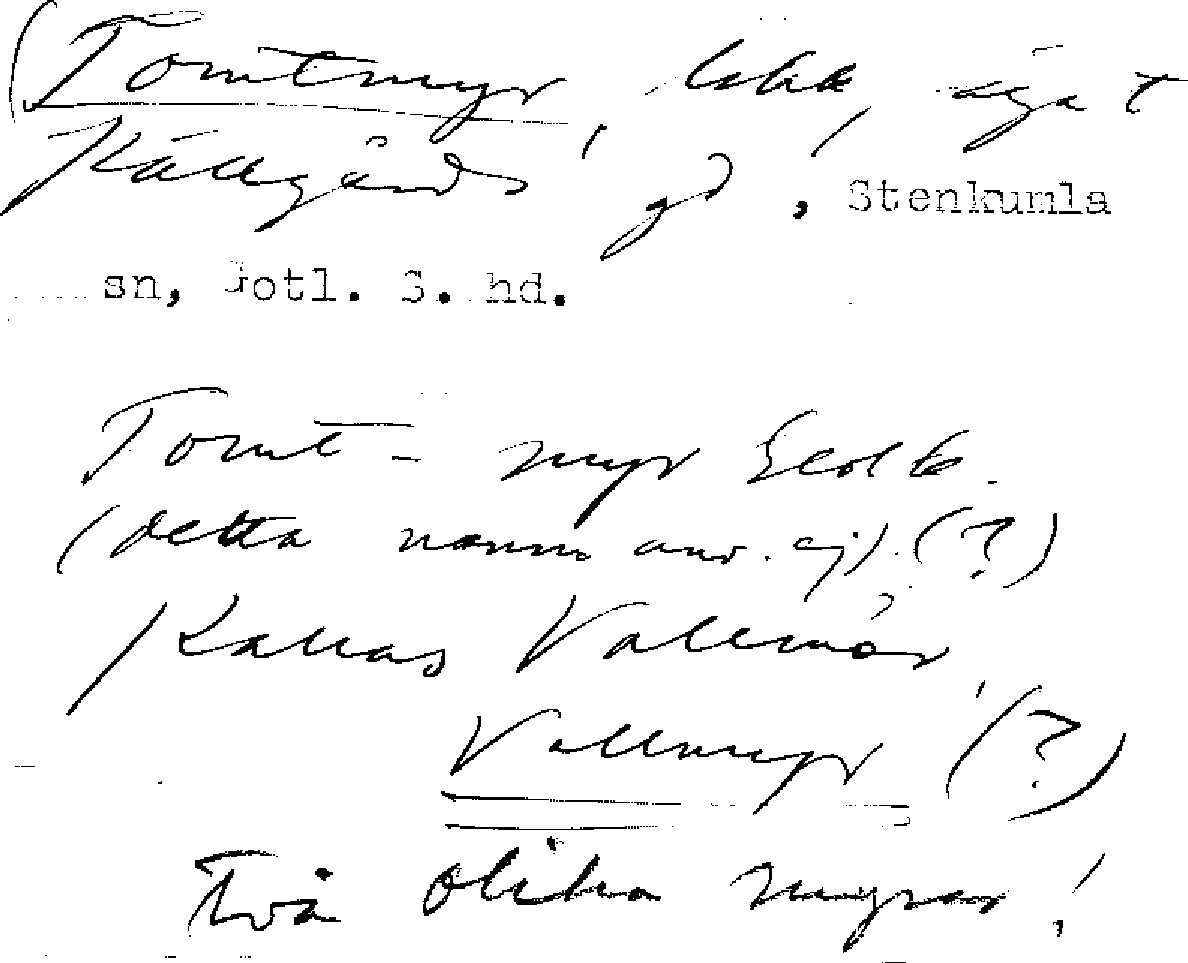 (Tomtmyr, lokk, ägat
Källgårds gd, Stenkumla
sn, Gotl. S. hd.
Tomt- myr Geolkb.
(detta namn anv. ej). (?)
Kallas Vallmör
Vallmyr (?)
Två olika myrar!